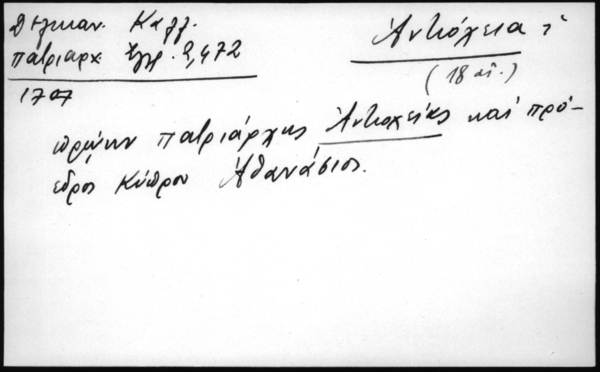 Δελικαν. Καλλ.
πατριαρχ. ἔγγρ. 2,472
Ἀντιόχεια ἡ
(18 αἰ.)
1707
πρώην πατριάρχης Ἀντιοχείας καὶ πρό-
εδρος Κύπρου Ἀθανάσιος.